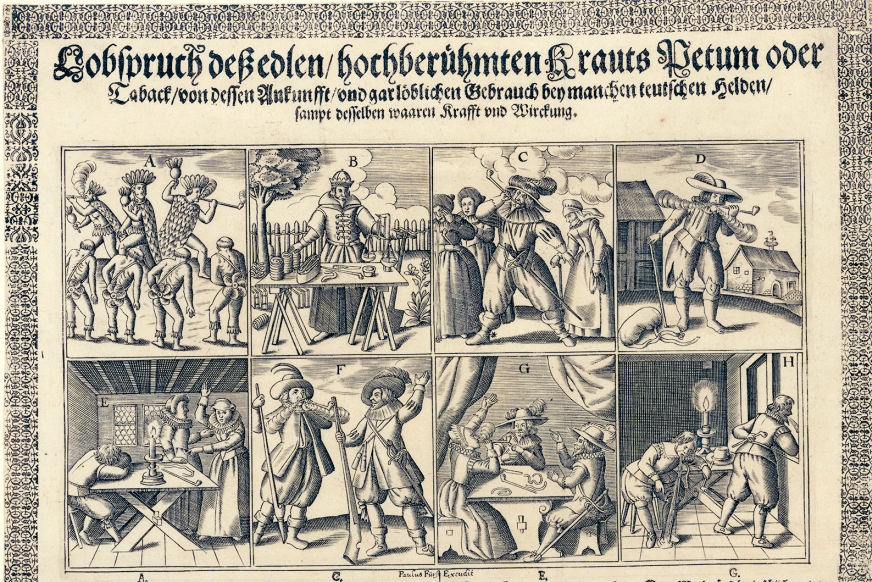 Lobspruch deß edlen/ hochberühmten Krauts Petum oder
Taback/ von dessen Ankunfft/ vnd gar löblichen Gebrauch bey manchen teutschen Helden/
sampt desselben waaren Krafft vnd Wirckung.
A B C D
E F G H
Paulus Fürst Excudit
A. C. E. G.